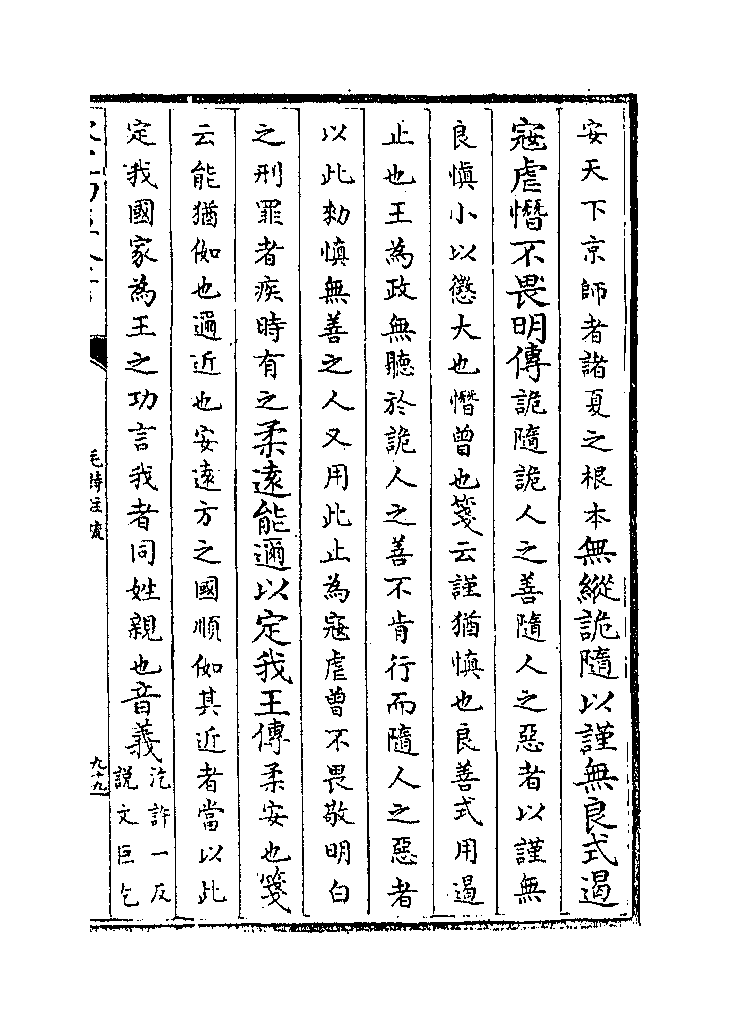 安天下京師者諸夏之根本無縱詭隨以謹無良式遏
寇虐憯不畏明傳詭隨詭人之善隨人之惡者以謹無
良慎小以懲大也憯曾也箋云謹猶慎也良善式用遏
止也王為政無聽於詭人之善不肯行而隨人之惡者
以此勑慎無善之人又用此止為寇虐曾不畏敬明白
之刑罪者疾時有之柔遠能邇以定我王傳柔安也箋
云能猶伽也邇近也安遠方之國順伽其近者當以此
定我國家為王之功言我者同姓親也音義汔許一反
說文巨乞
毛詩注疏
九十九